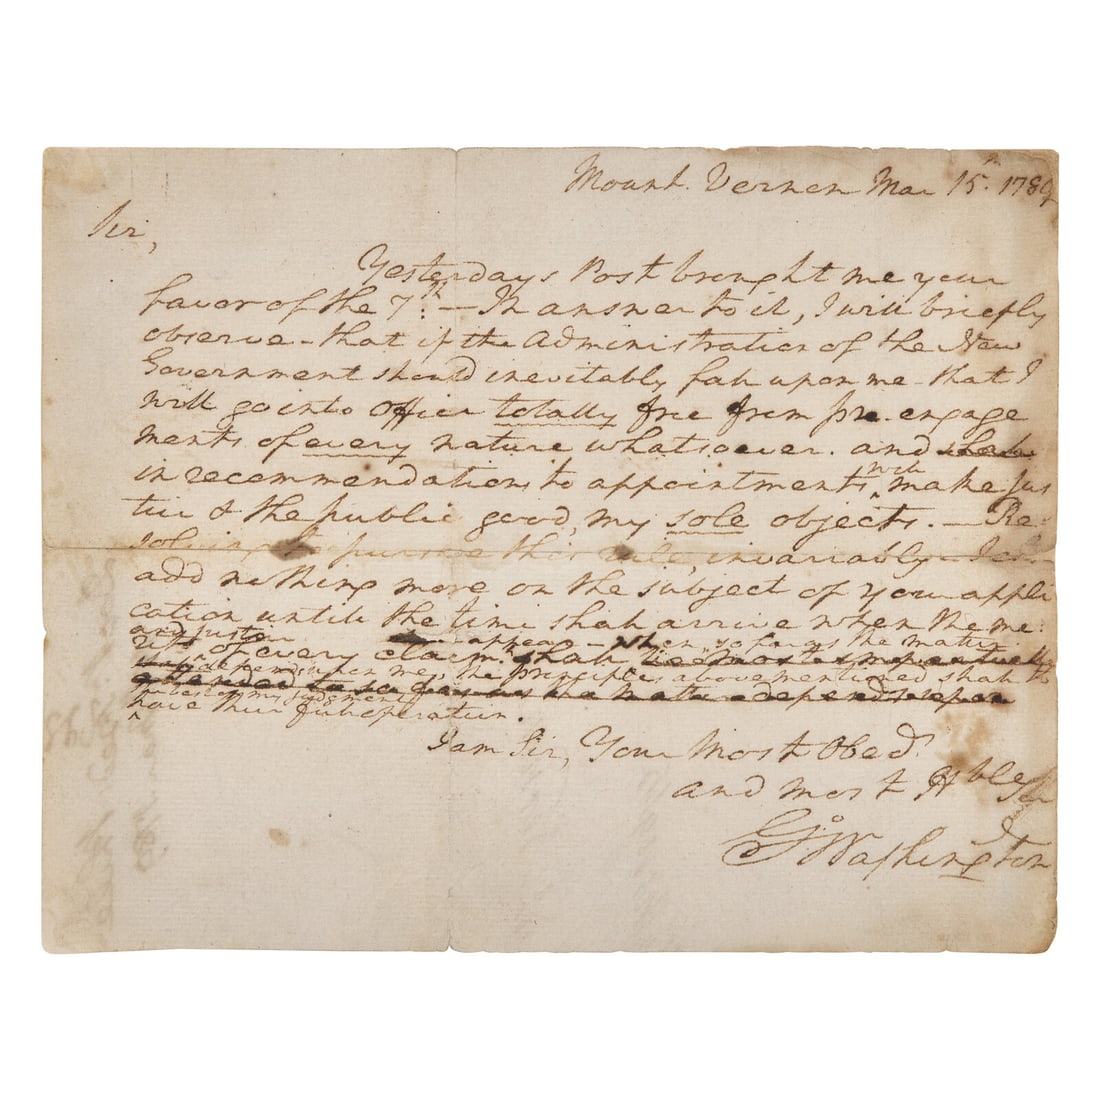 Mount Vernon Mar 15th 1789
Sir,
Yesterdays Post brought me your
favor of the 7th. – In answer to it, I will briefly
observe – that if the Administration of the New
Government should inevitably fall upon me – that I
will go into Office totally free from pre-engage
ments of every nature whatsoever. and
in recommendations to appointments will make Jus
tice & the public good, my sole objects. – Re-
solving to pursue this rule, invariably I shall
add nothing more on the subject of your appli
cation until the time shall arrive when the me-
rits and justice of every claim shall appear – when, so far as the matter
depends upon me, the principles abovementioned shall to
the best of my judgment
have their full operation.
I am Sir, Your Most Obedt
and most Hble Ser
Go Washington